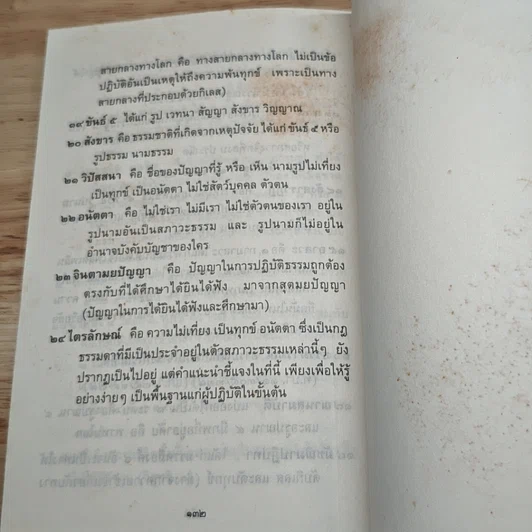 สายกลางทางโลก คือ ทางสายกลางทางโลก ไม่เป็นข้อ
ปฏิบัติอันเป็นเหตุให้ถึงความพ้นทุกข์ เพราะเป็นทาง
สายกลางที่ประกอบด้วยกิเลส)
๑๙ ขันธ์ ๕ ได้แก่ รูป เวทนา สัญญา สังขาร วิญญาณ
๒๐ สังขาร คือ ธรรมชาติที่เกิดจากเหตุปัจจัย ได้แก่ ขันธ์ ๕ หรือ
รูปธรรม นามธรรม
๒๑ วิปัสสนา คือ ชื่อของปัญญาที่รู้ หรือ เห็น นามรูปไม่เที่ยง
เป็นทุกข์ เป็นอนัตตา ไม่ใช่สัตว์บุคคล ตัวตน
๒๒ อนัตตา คือ ไม่ใช่เรา ไม่มีเรา ไม่ใช่ตัวตนของเรา อยู่ใน
รูปนามอันเป็นสภาวะธรรม และ รูปนามก็ไม่อยู่ใน
อำนาจบังคับบัญชาของใคร
๒๓ จินตามยปัญญา คือ ปัญญาในการปฏิบัติธรรมถูกต้อง
ตรงกับที่ได้ศึกษาได้ยินได้ฟัง มาจากสุตมยปัญญา
(ปัญญาในการได้ยินได้ฟังและศึกษามา)
๒๔ ไตรลักษณ์ คือ ความไม่เที่ยง เป็นทุกข์ อนัตตา ซึ่งเป็นกฎ
ธรรมดาที่มีเป็นประจำอยู่ในตัวสภาวะธรรมเหล่านี้ๆ ยัง
ปรากฏเป็นไปอยู่ แต่คำแนะนำชี้แจงในที่นี้ เพียงเพื่อให้รู้
อย่างง่ายๆ เป็นพื้นฐานแก่ผู้ปฏิบัติในขั้นต้น
๑๓๒